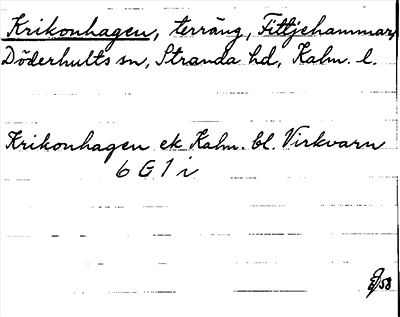 Krikonhagen, terräng, Fittjehammar,
Döderhults sn, Stranda hd, Kalm. l.
Krikonhagen ek Kalm. bl. Virkvarn
6 G 1 i
/58